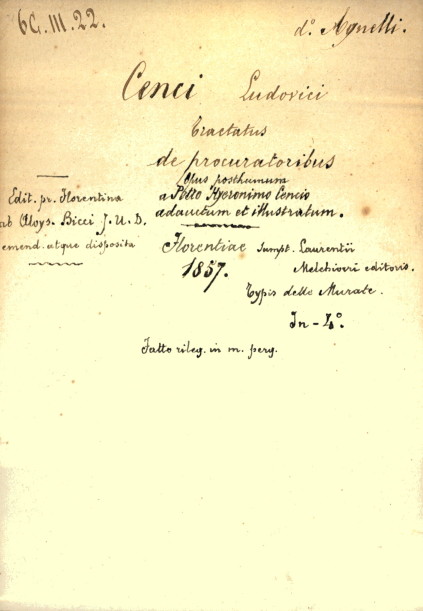 6G.III.22.
d.º Agnelli.
Cenci Ludovici
Tractatus
de procuratoribus
Opus posthumum
a Petto Hyeronimo Cencio
adauctum et illustratum.
Edit. pr. Florentina
ab Aloys. Bicci J. U. D.
emend. atque disposita
Florentiae sumpt. Laurentii
1857.
Melchiori editoris.
Typis delle Murate.
In - 4º.
Fatto rileg. in m. perg.